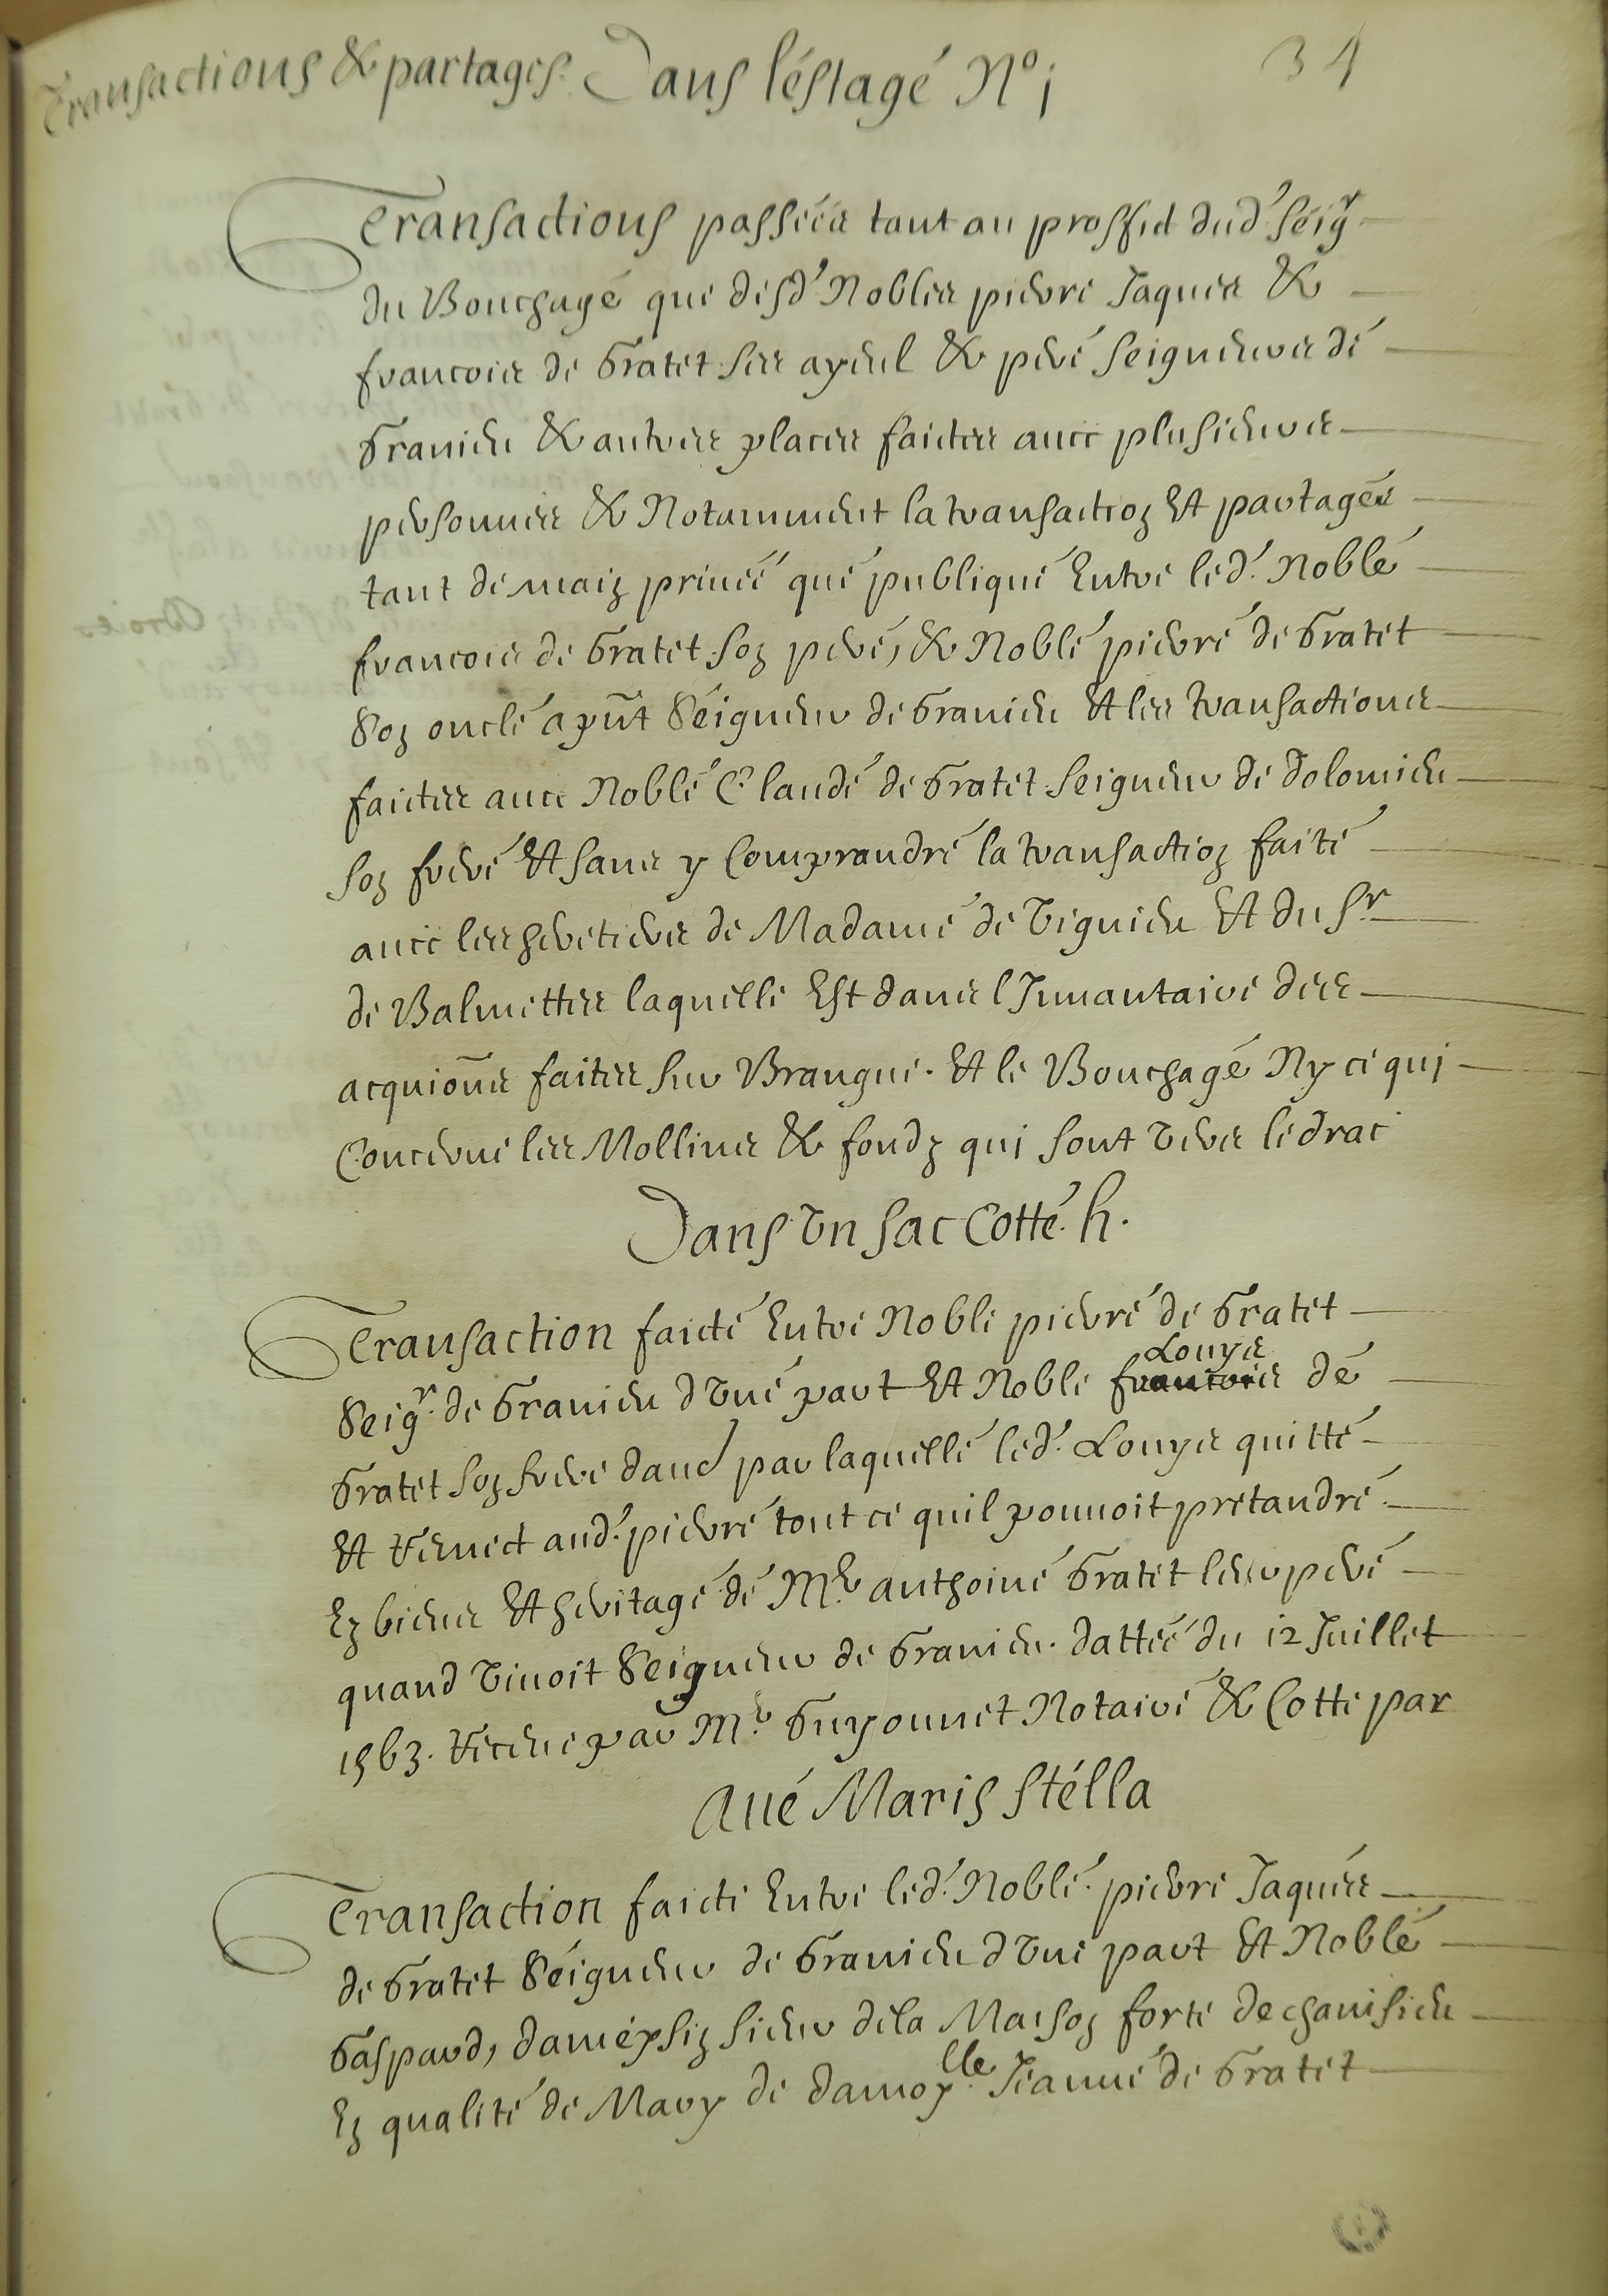 Transactions & partages. Dans l'éstagé N° 1
34
Transactions passéés tant au proffict dud' séigr
du Bouchagé que desd' Nobles pierre Jaques &
francois de Gratet ses ayeul & peré seigneurs dé
Granieu & autres places faictes auec plusieurs
personnes & Notamment la transaction Et partagés
tant de main priuéé qué publiqué Entre led'. Noblé
francois de Gratet son peré, & Noblé pierré de Gratet
Son onclé ayñt Séigneur de Granieu Et les transactions
faictes auec Noblé Claudé de Gratet seigneur de dolomieu
son freré Et sans y Comprandré la transaction faité
auec les heretiers de Madamé de Vignieu Et du Sr
de Balmettes laquelle Est dans l Inuantaire des
acquiõns faites sur Brangue. Et le Bouchagé Ny ce qui
Concerne les Mollins & fondz qui sont vers le drac
Dans vn sac Cotté. h.
Transaction faicté Entre Noble pierré de Gratet
Seigr. de Granieu d vné part Et Noble francois dé
Louys
Gratet son frere daud par laquellé led'. Louys quitté
Et remect aud'. pierré tout ce quil pouuoit pretandré
En biens Et heritagé dé Mr anthoiné Gratet leur peré
quand viuoit Seigneur de Granieu. dattéé du 12 Juillet
1563. receue par Mr Guyonnet Notairé & Cotte par
Aué Maris stélla
Transaction faicte Entre led'. Noblé. pierre Jaqués
de Gratet Séigneur de Granieu d vne part Et Noblé
Gaspard, daméysin sieur dela Maison forte de chanisieu
En qualité de Mary de damoylle. Jeanné de Gratet